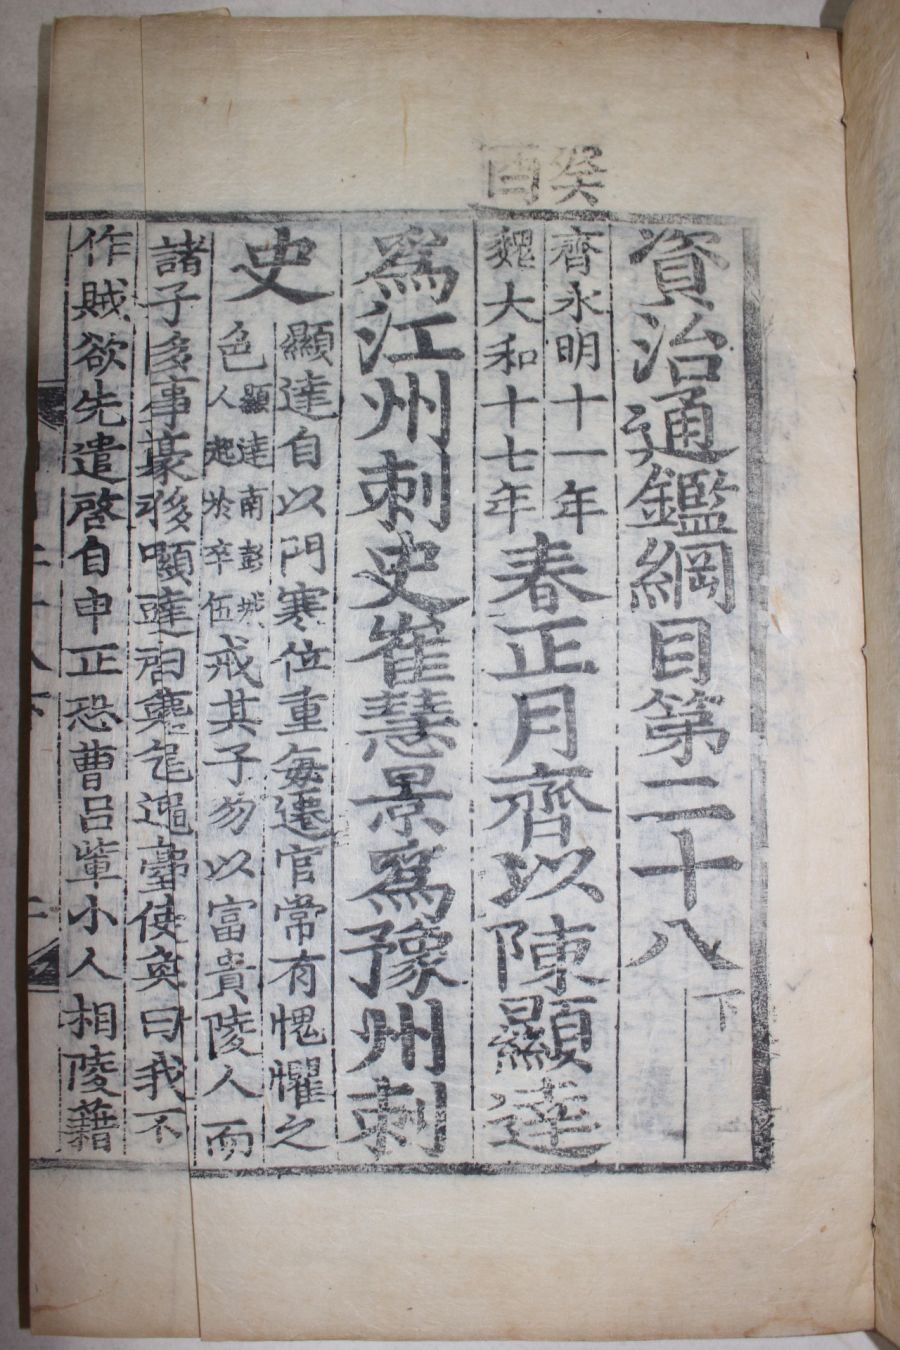 癸酉
資治通鑑綱目第二十八下
齊永明十一年
魏大和十七年
春正月齊以陳顯達
爲江州刺史崔慧景爲豫州刺
史
顯達自以門寒位重每遷官常有愧懼之
色
顯達南彭城
人起於卒伍
戒其子勿以富貴陵人而
諸子多事豪 使奐曰我不
作賊欲先遣啓自申正恐曹呂輩小人相陵藉